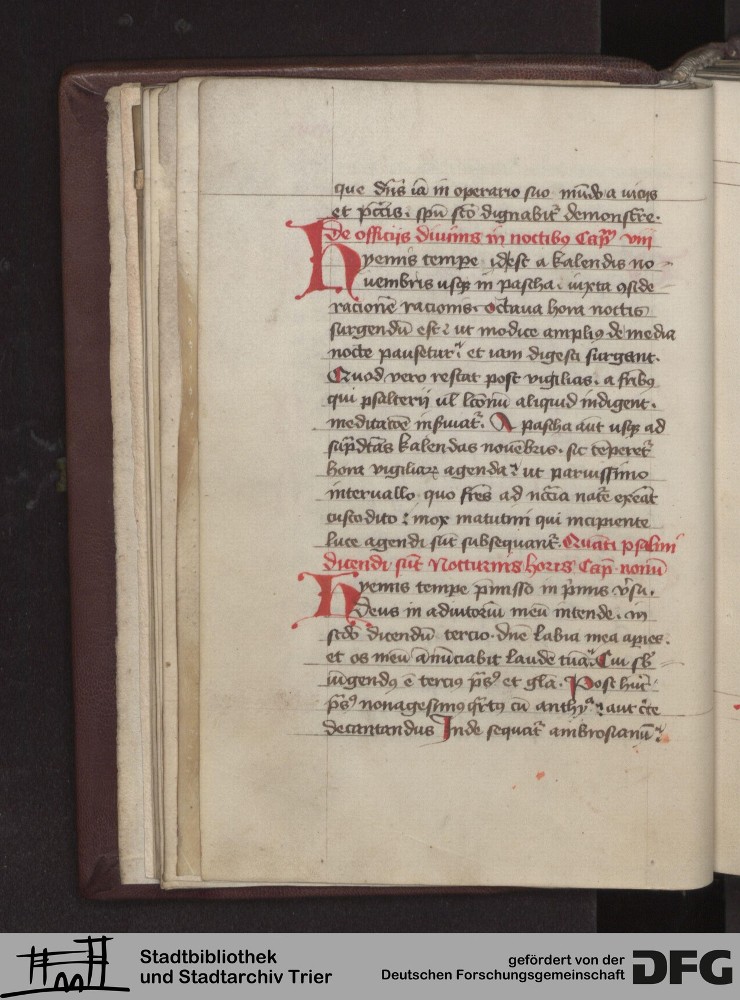 que dn̄s iā in operario suo mūdo a uiciis
et pctīs. spū scō dignabit̄ demonstre.
De officiis diuinis in noctibꝯ Capm̄ viii
Hyemis tempe idest a kalendis no
uembris usqꝫ in pascha. iuxta ɔside
racionē racionis. octaua hora noctis
surgendū est: ut modice ampliꝯ de media
nocte pausetur: et iam digesti surgant.
Quod vero restat post vigilias. a fr̄ibꝯ
qui psalterii ul̄ lcōnū aliquid indigent.
meditacōe inseruiat̄. A pascha aut usqꝫ ad
sup̄dc̄tas kalendas nouēbris. sic tēperet̄
hora vigiliaꝝ agenda: ut paruissimo
interuallo quo fr̄es ad nc̄cia nat̄e exeāt
custodito: mox matutini qui incipiente
luce agendi sūt subsequant̄. Quāti psalmi
dicendi sūt Nocturnis horis Cap̄ nonū
Hyemis tempe p̄misso in p̄mis v̄su.
Deus in adiutoriū meū intende. in
scd̄o dicendū tercio. dn̄e labia mea apies.
et os meū annūciabit laudē tuā. Cui sb̄
iūgendꝯ ē terciꝯ ps̄ꝯ et gl̄a. Post hūc
ps̄ꝯ nonagesimꝯ qr̄tꝯ cū anthy̅ᵃ: aut cc̄te
decantandus Inde sequat̄ ambrosianū:
Stadtbibliothek
und Stadtarchiv Trier
gefördert von der
Deutschen Forschungsgemeinschaft
DFG